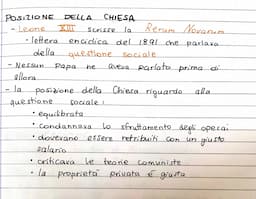 POSIZIONE DELLA CHIESA
- Leone XIII scrisse la Rerum Novarum
- lettera enciclica del 1891 che parlava
della questione sociale
- Nessun Papa ne aveva parlato prima di
allora
- la posizione della Chiesa riguardo alla
questione sociale:
• equilibrata
• condannava lo sfruttamento degli operai
• dovevano essere retribuiti con un giusto
salario
• criticava le teorie comuniste
• la proprietà privata è giusta